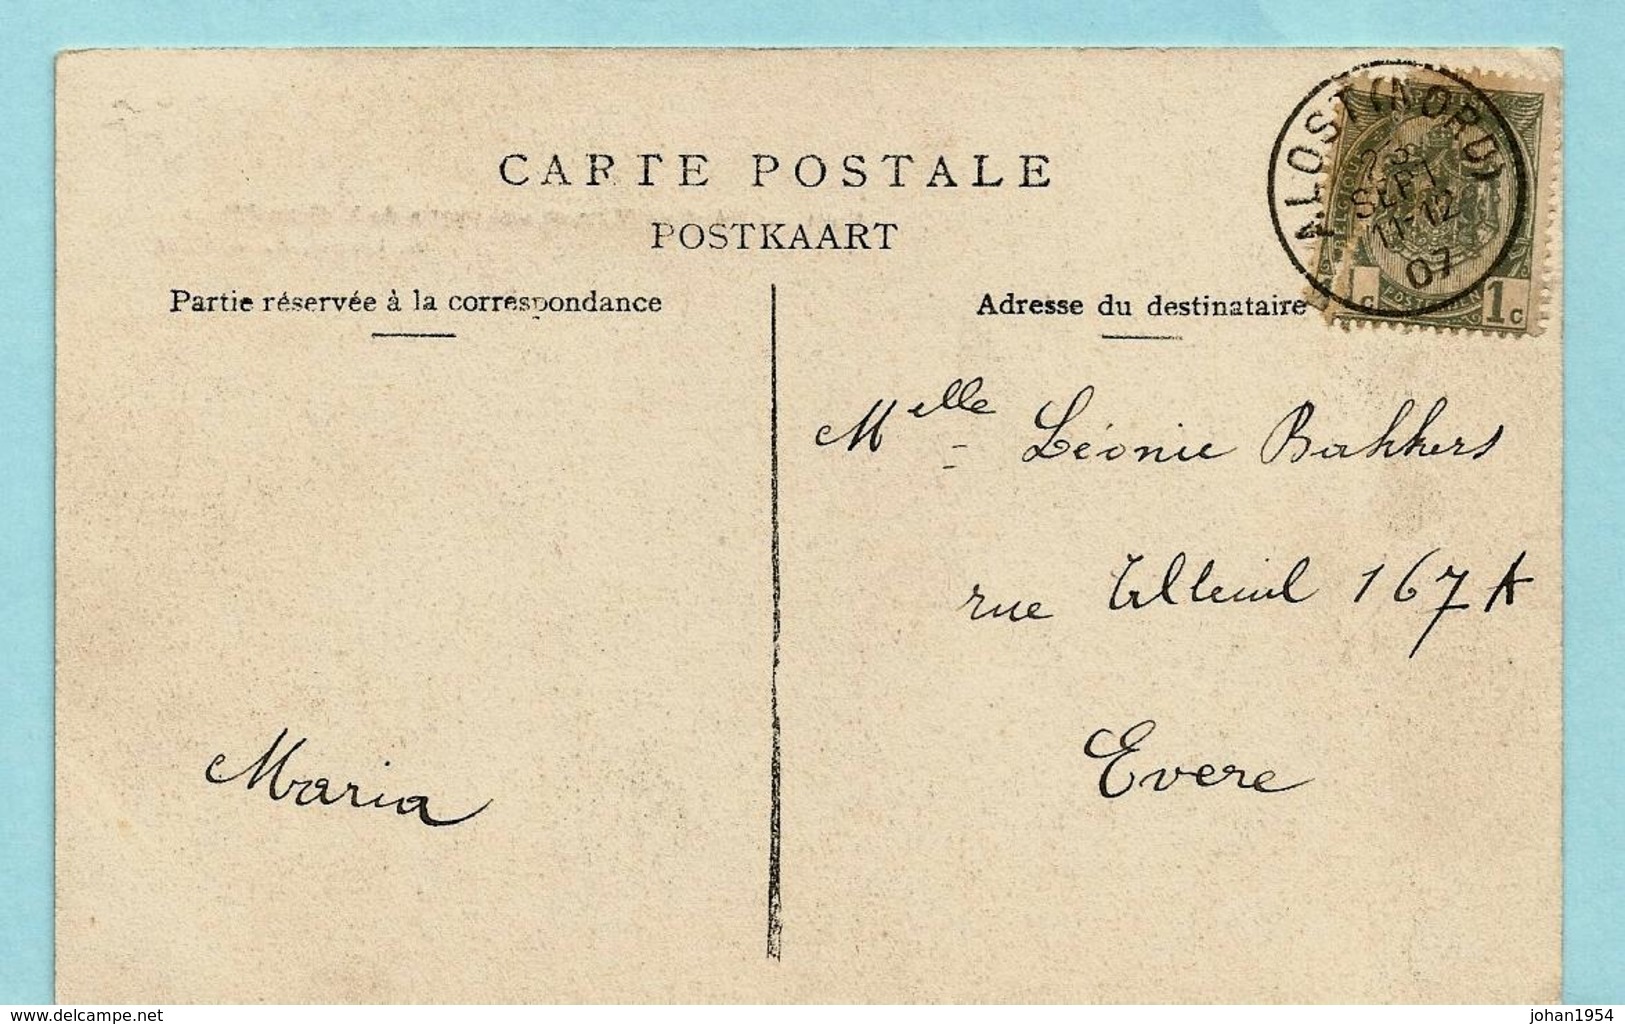 CARTE POSTALE
POSTKAART
Partie réservée à la correspondance
Adresse du destinataire
ALOST (NORD)
SEPT
11-12
07
1c
Melle Léonie Bakkers
rue 167 A
Evere
Maria
www.delcampe.net
johan1954